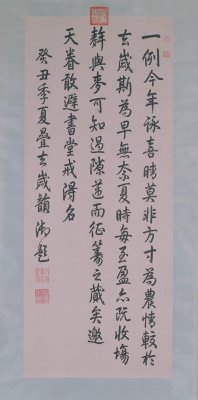 一例今年詠喜晴莫非方寸為農情較於
去歲斯為早無奈夏時每至盈亦既收場
辤與麥可知過隙遂而征篝之歲矣邀
天眷敢避書堂戒得名
癸丑季夏疊去歲韻御題